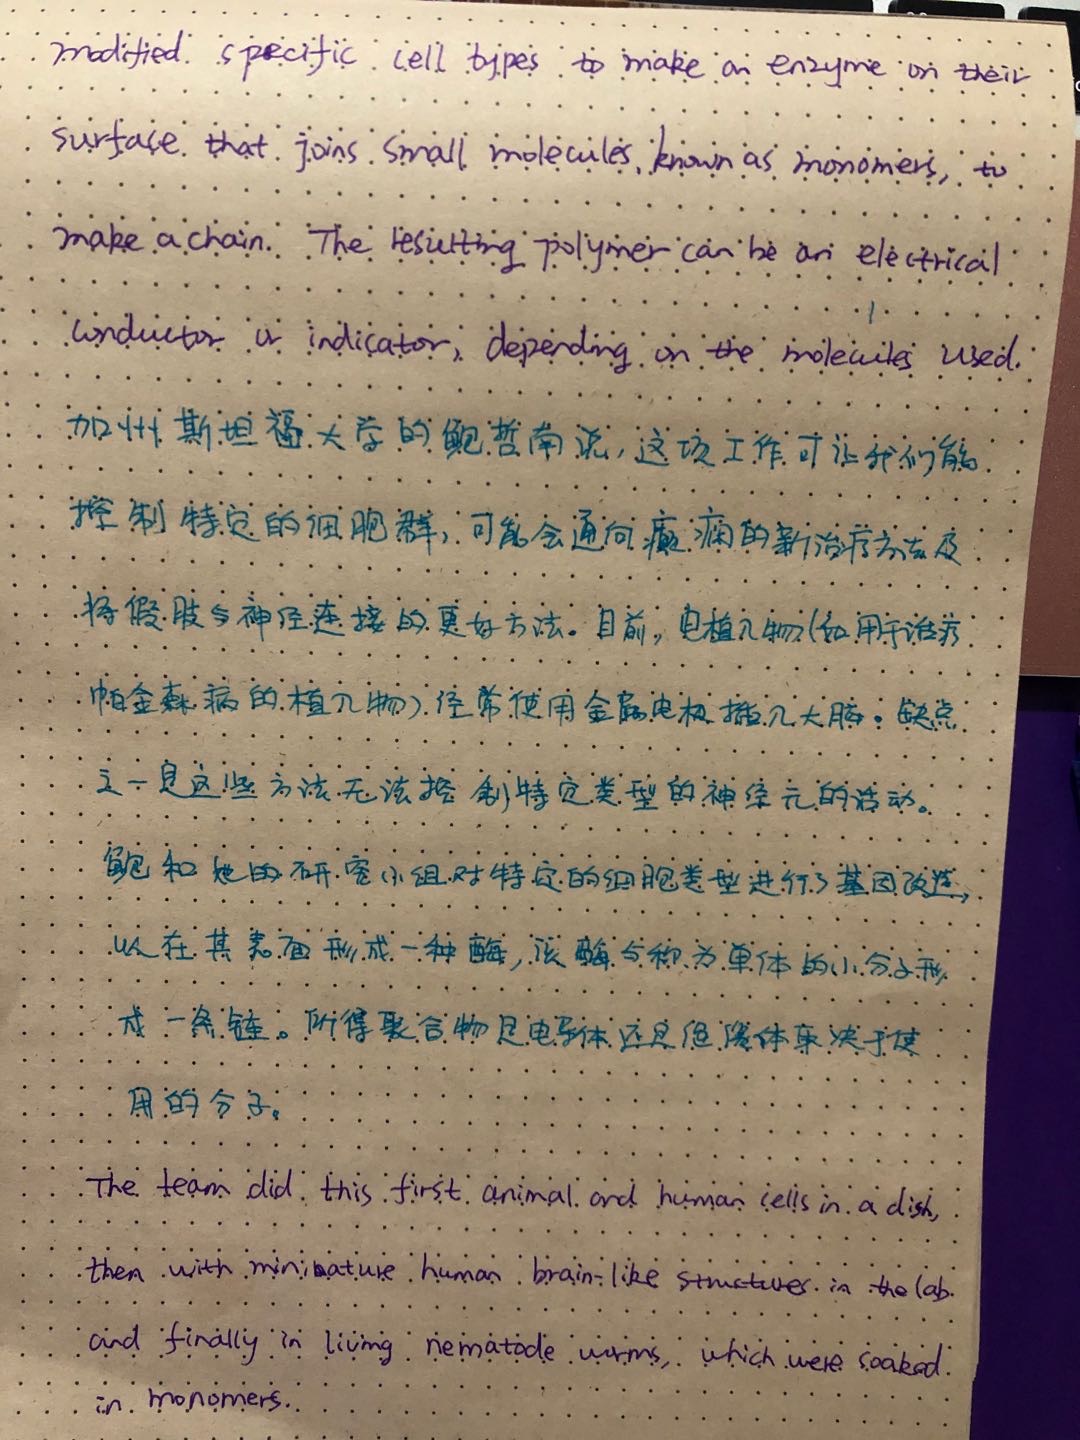 modified specific cell types to make an enzyme on their
surface that joins small molecules, known as monomers, to
make a chain. The resulting polymer can be an electrical
conductor or indicator, depending on the molecules used.
加州斯坦福大学的鲍哲南说，这项工作可让我们能
控制特定的细胞群，可能会通向癫痫的新治疗方法及
将假肢与神经连接的更好方法。目前，电植入物（如用于治疗
帕金森病的植入物）经常使用金属电极插入大脑。缺点
之一是这些方法无法控制特定类型的神经元的活动。
鲍和她的研究小组对特定的细胞类型进行了基因改造，
以在其表面形成一种酶，该酶与称为单体的小分子形
成一条链。所得聚合物是电导体还是绝缘体取决于使
用的分子。
The team did this first animal and human cells in a dish,
then with miniature human brain-like structures in the lab
and finally in living nematode worms, which were soaked
in monomers.